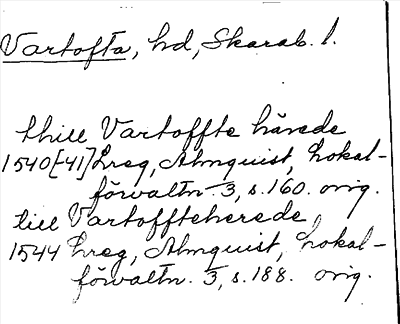 Vartofta, hd, Skarab. l.
thill Vartoffte härede
1540[-41] Lreg, Almquist, Lokal-
förvaltn. 3, s. 160. orig.
till Vartoffteherede
1544 Lreg, Almquist, Lokal-
förvaltn. 3, s. 188. orig.